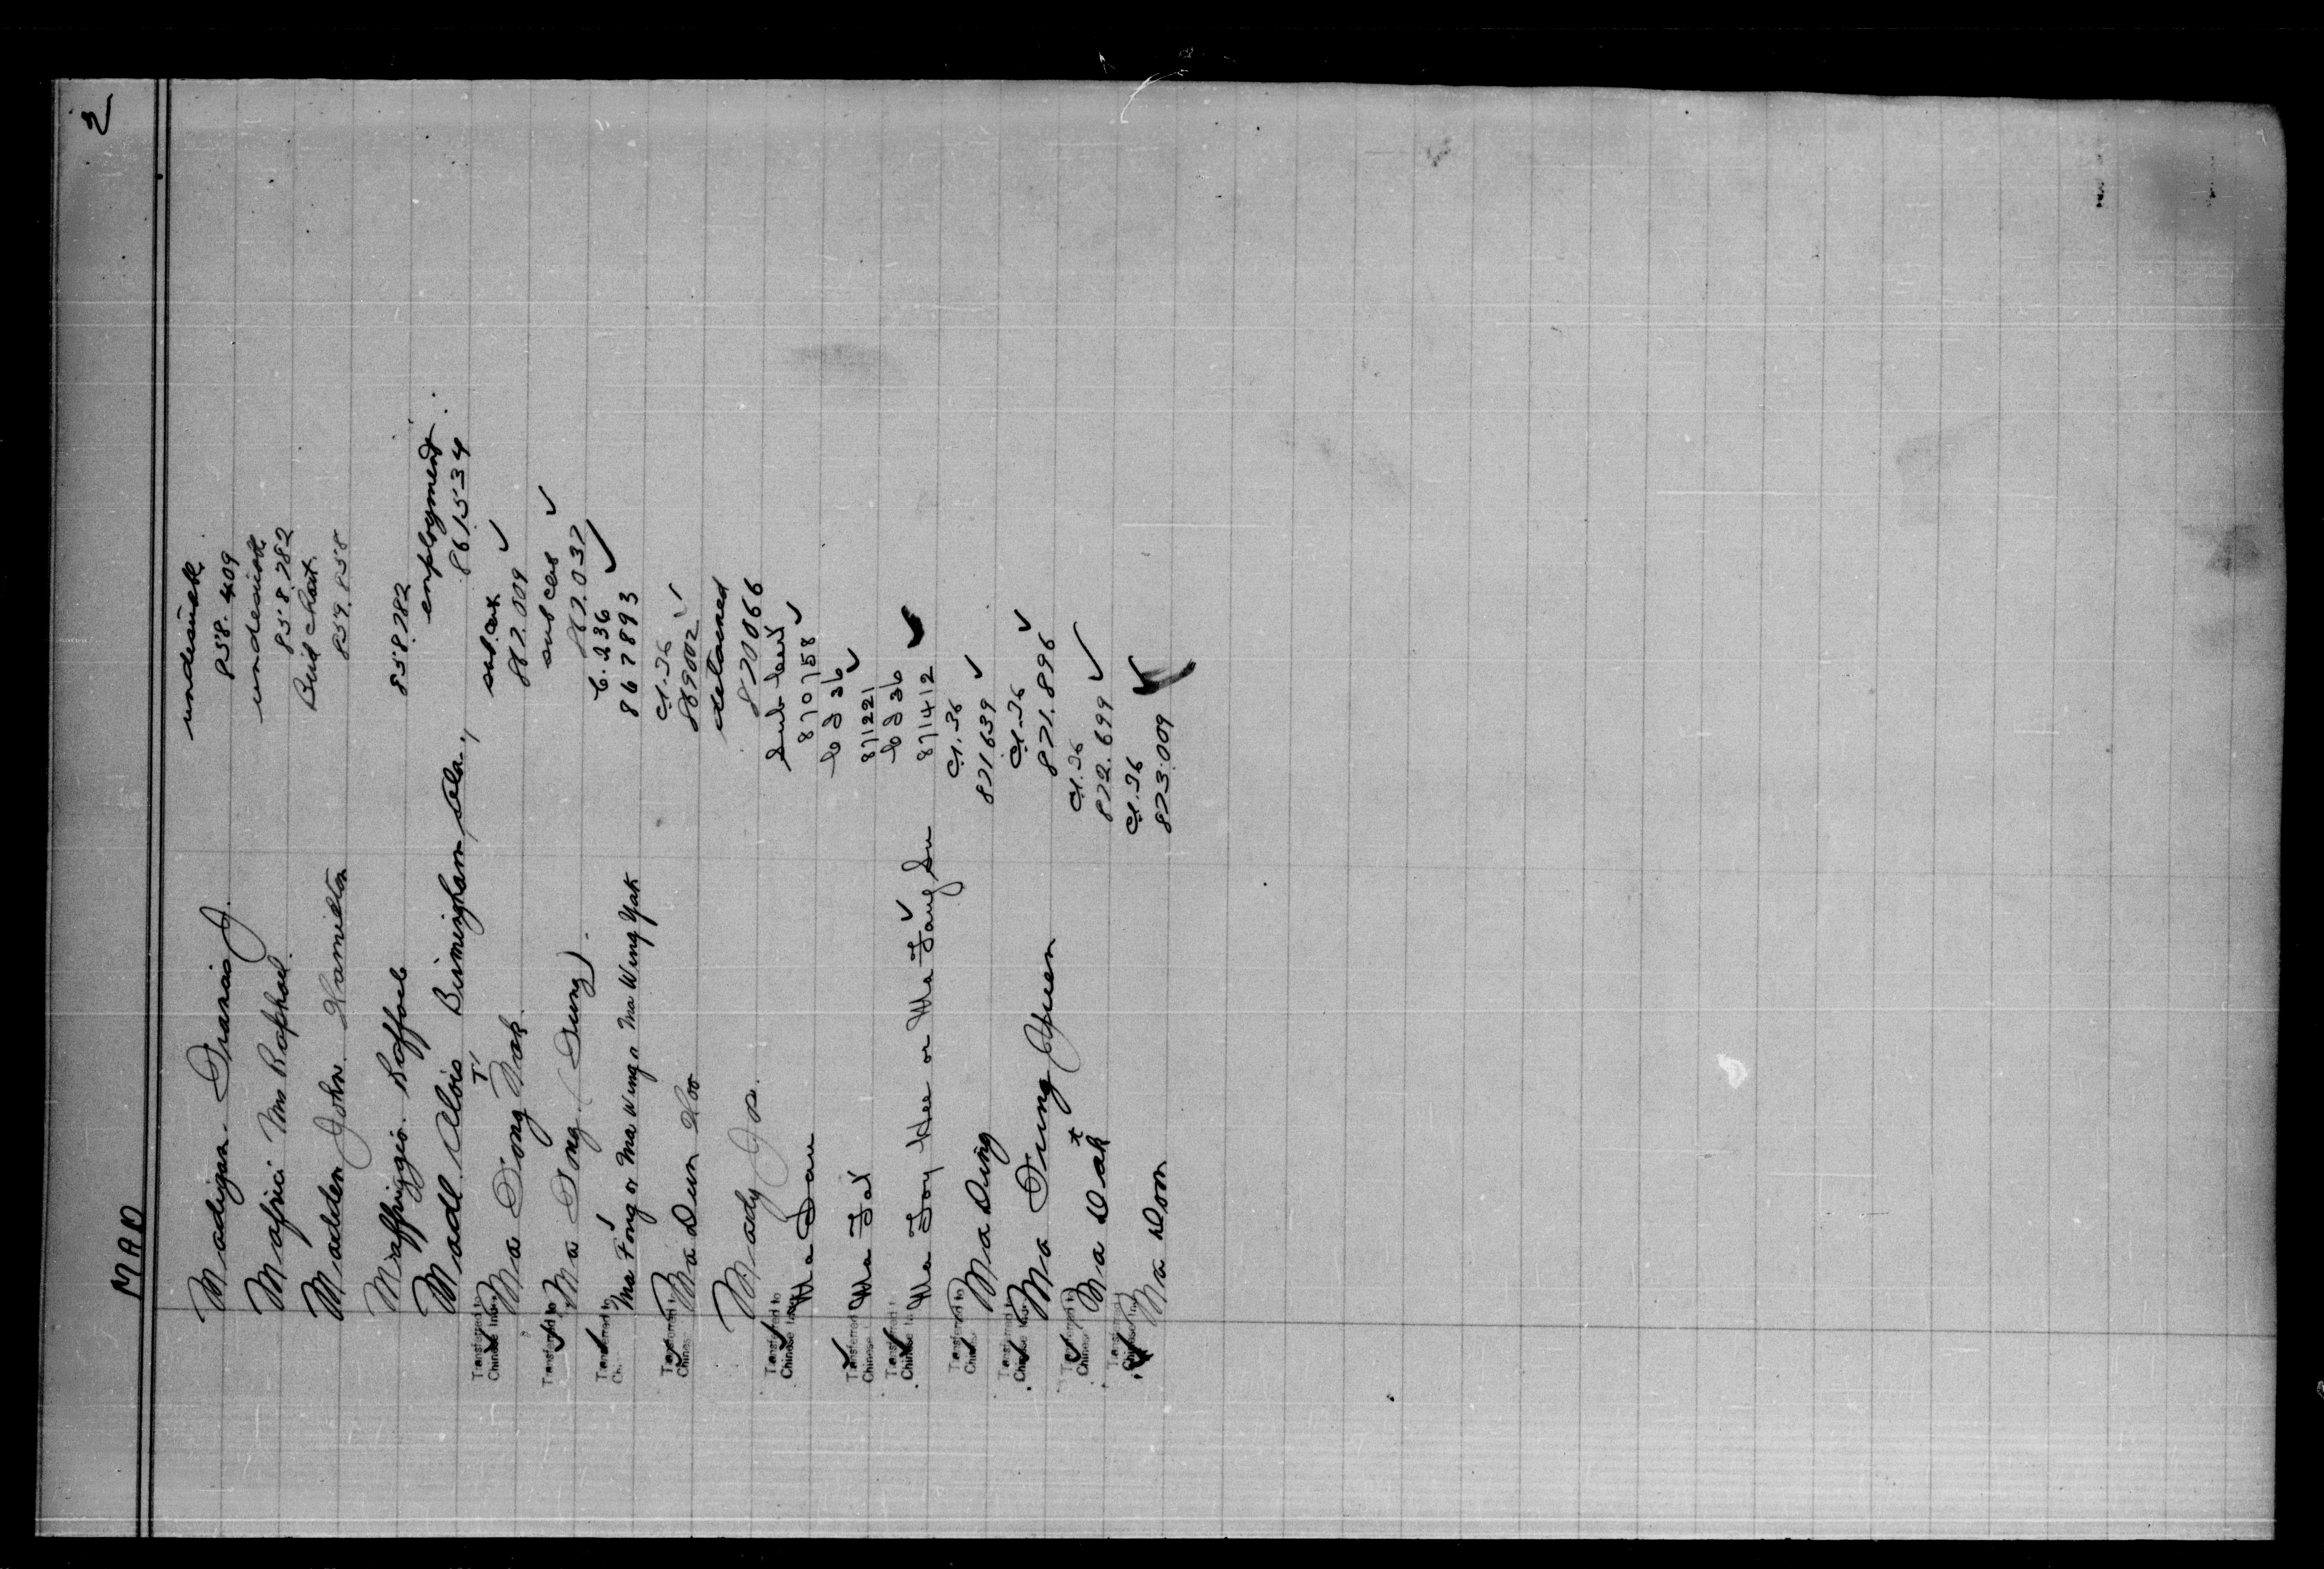 MAD
2
Madigan Francis J. undesirable
858.409
Mafrici Mrs Raphael. undesirable
858.782
Madden John Hamilton
859.858
Maffriggio. Raffaele 858782
Madl Alois Birmingham, Ala., employment
861534
Transferred to Chinese Index Ma Fong Nok. sub. cer.
862.009 ✓
Transferred to Ma Fong (Fung). sub cer ✓
862.037
Transferred to C.236
Ma Fong or Ma Wing or Ma Wing Yak 867893
Transferred to Chinese Ma Dun Hoo Cl.36
869002 ✓
Mady Jos. detained
870066
Transferred to Chinese Index Ma Sau
870758 ✓
Transferred to Chinese Ma Fat C I 36 ✓
871221
Transferred to Chinese Index Ma Foy Hee or Ma Fang Su C I 36
871412 ✓
Transferred to Ma Ding Cl.36
871639 ✓
Transferred to Chinese Index Ma Fung Yuen Cl.36
871.896 ✓
Transferred to Chinese Ma Dak Cl.36
872.699 ✓
Ma Don Cl.36
873.009 ✓